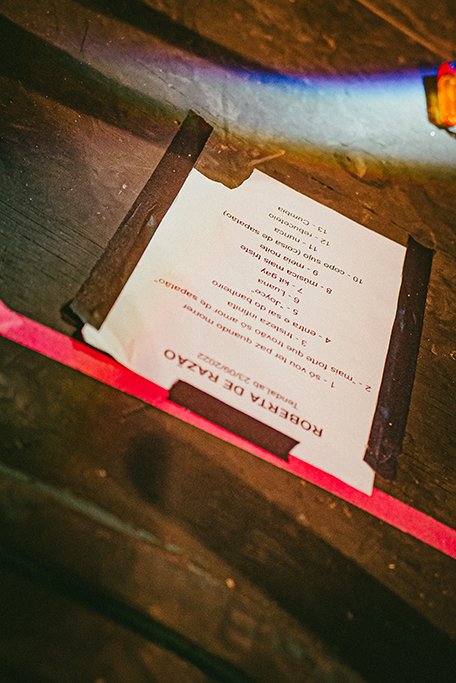 ROBERTA DE RAZÃO
TendaLab 23/09/2022
1 - só vou ter paz quando morrer
2 - "mais forte que trovão só amor de sapatão"
3 - tristeza infinita
4 - entra e sai do banheiro
5 - "Joyce"
6 - Luana
7 - kit gay
8 - música mais triste
9 - meia noite
10 - copo sujo (coisa de sapatão)
11 - nunca
12 - rebuceteio
13 - Cumbia